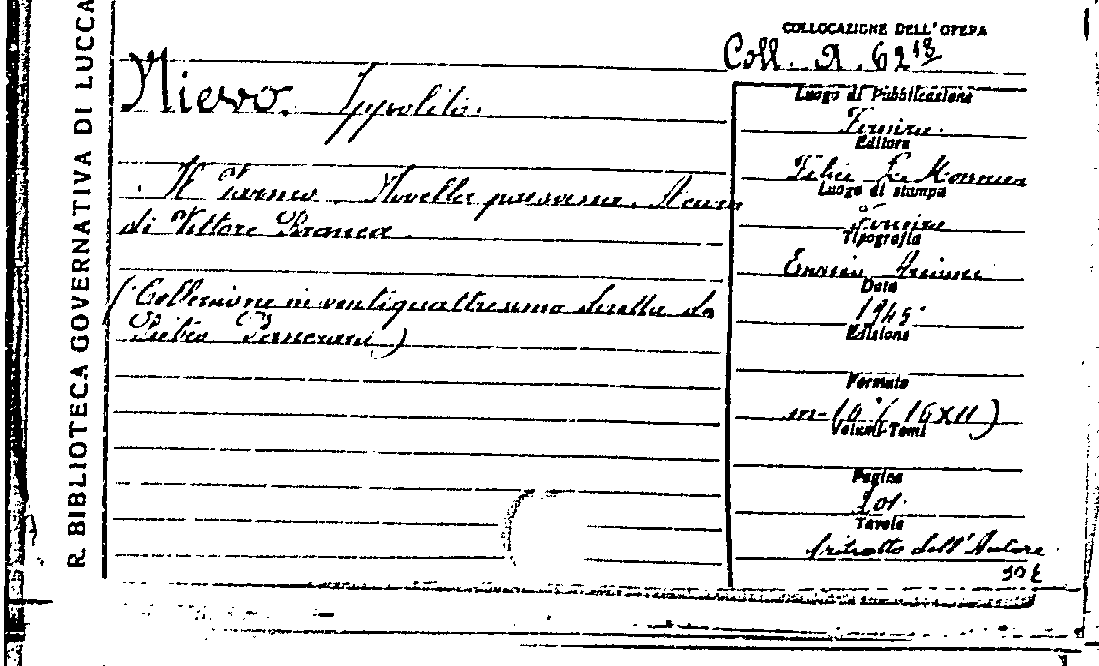 R. BIBLIOTECA GOVERNATIVA DI LUCCA
COLLOCAZIONE DELL'OPERA
Coll. A. 62 18
Nievo. Ippolito.
Il Varmo. Novella paesana. A cura
di Vittore Branca.
(Collezione in ventiquattresimo diretta da
Pietro Pancrazi)
Luogo di Pubblicazione
Firenze.
Editore
Felice Le Monnier
Luogo di stampa
Firenze
Tipografia
Enrico Ariani
Data
1945
Edizione
Formato
Volumi-Tomi
Pagine
101.
Tavole
1 ritratto dell'Autore